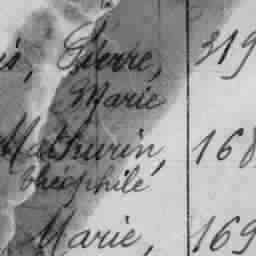 is, Pierre, 319
Marie
Mathurin, 168
théophile
Marie, 169